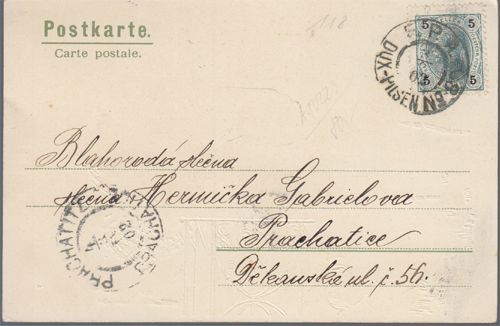 Postkarte.
Carte postale.
118
5 5
5 5
DUX-PILSEN
Blahorodá slečna
slečna Hermička Gabrielova
Prachatice
Děkanské ul. č. 56.
PRACHATITZ
PRACHATICE